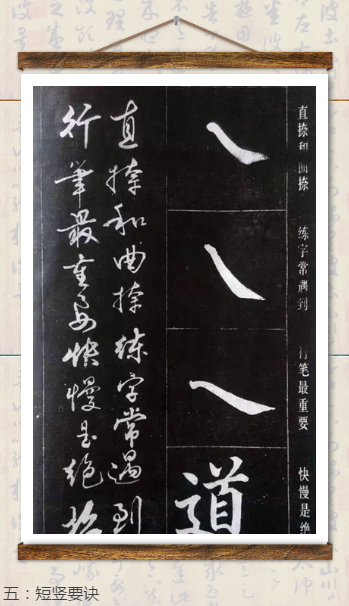 直捺和曲捺 练字常遇到 行笔最重要 快慢是绝
道
直捺和曲捺练字常遇到
行笔最重要快慢是绝
五：短竖要诀